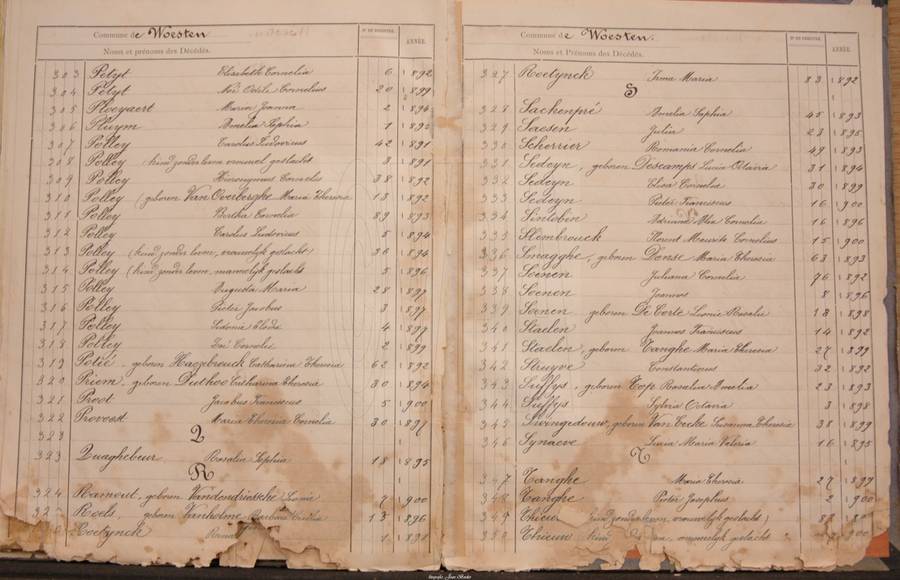 Commune de Woesten
Noms et prénoms des Décédés.
N° DU REGISTRE.
ANNÉE.
303 Petyt Elisabeth Cornelia 6 1892
304 Petyt Noë Odile Cornelius 20 1899
305 Ploeyaert Maria Joanna 2 1894
306 Pluym Amelia Sophia 1 1892
307 Polley Carolus Ludovicus 42 1891
308 Polley (kind zonder leven vrouwel. geslacht 3 1891
309 Polley Hieronymus Cornelis 38 1892
310 Polley (geboren Van Overberghe Maria Theresia 13 1892
311 Polley Bertha Cornelia 89 1893
312 Polley Carolus Ludovicus 5 1894
313 Polley (kind zonder leven, vrouwelijk geslacht) 36 1894
314 Polley (kind zonder leven, mannelijk geslacht 5 1896
315 Polley Augusta Maria 28 1897
316 Polley Pieter Jacobus 3 1897
317 Polley Sidonie Elodie 4 1897
318 Polley Zoë Cornelia 2 1899
319 Potié, geboren Hazebrouck Catharina Theresia 62 1892
320 Priem, geboren Duthoo Catharina Theresia 30 1894
321 Proot Jacobus Franciscus 5 1900
322 Provoost Maria Theresia Cornelia 30 1897
323 Q
323 Quaghebeur Rosalia Sophia 18 1895
R
324 Ramout, geboren Vandendriessche Leonie 7 1900
325 Roels, geboren Vanholme Barbara 13 1896
Roetynck 1 1891
Commune de Woesten.
Noms et Prénoms des Décédés.
N° DU REGISTRE.
ANNÉE.
327 Roetynck Irma Maria 83 1892
S
328 Sachenpré Amelia Sophia 45 1893
329 Saesen Julia 23 1895
330 Scherrier Romania Cornelia 49 1893
331 Sedeyn, geboren Descamps Lucia Octavia 31 1894
332 Sedeyn Elisa Cornelia 30 1899
333 Sedeyn Pieter Franciscus 16 1900
334 Sintobin Adriana Cornelia 16 1896
335 Slembrouck Florent Maurits Cornelius 15 1900
336 Smagghe, geboren Dense Maria Theresia 63 1893
337 Soenen Juliana Cornelia 76 1892
338 Soenen Joannes 8 1896
339 Soenen geboren De Corte Leonie Rosalie 13 1898
340 Staelen Joannes Franciscus 14 1892
341 Staelen, geboren Tanghe Maria Theresia 27 1899
342 Struyve Constantinus 32 1892
343 Suffys, geboren Top Rosalia Amelia 23 1893
344 Suffys Sylvia Octavia 3 1898
345 Swingedouw, geboren Van Eecke Susanna Theresia 38 1899
346 Synaeve Lucia Maria Valeria 16 1895
T
347 Tanghe Maria Theresia 27 1899
348 Tanghe Pieter Josephus 2 1900
349 Thieuw kind zonder leven, vrouwelijk geslacht)
350 Thieuw kind leven, vrouwelijk geslacht 1900